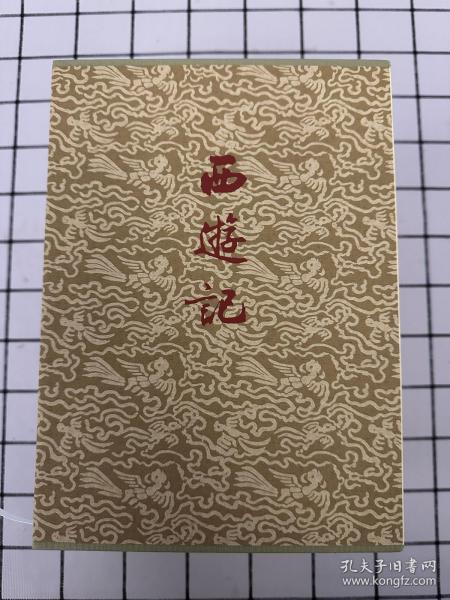 西遊記
孔夫子旧书网
www.kongfz.com